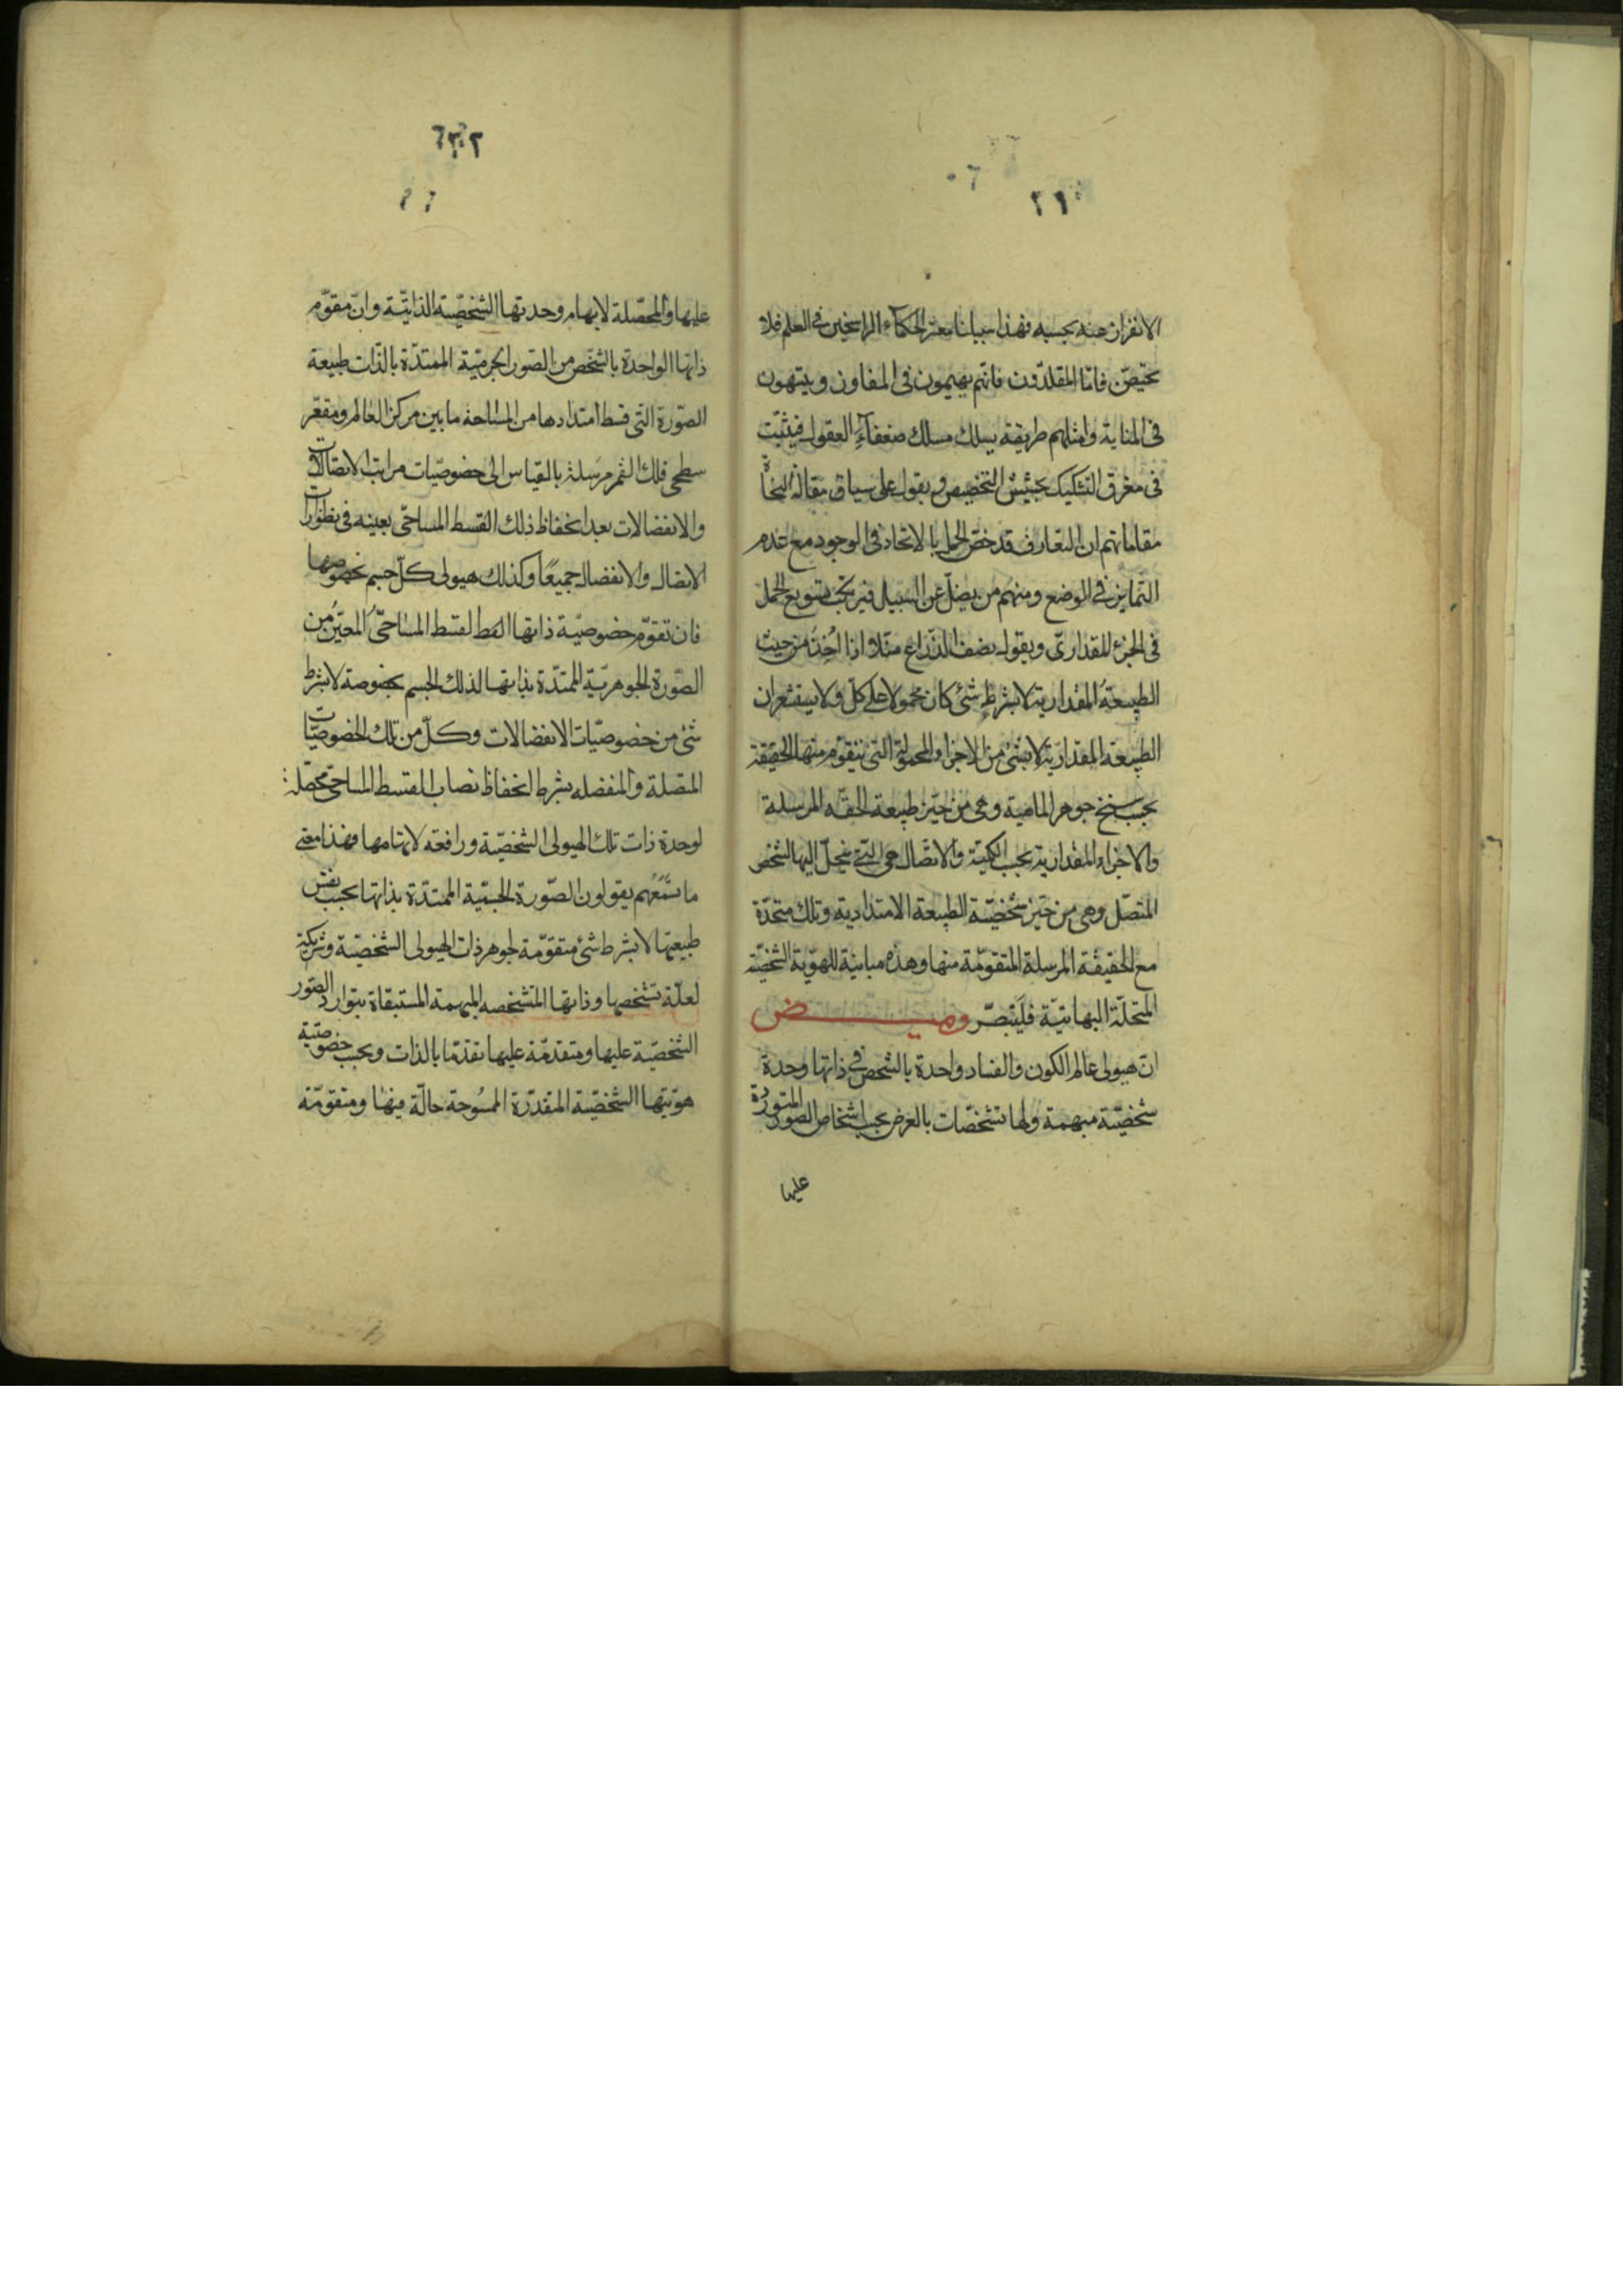 الانفراز عنه بحسبه فهذا سبيلنا معشر الحكماء الراسخين فى العلم فلا
فامّا المقلدون فانهم يهيمون فى المفاوز ويتيهون
فى وامثلهم طريقة يسلك مسلك ضعفاء العقول فيتثبّت
فى التشكيك التخصيص ويقول على سياق مقالة
مقاماتهم ان التعارف قد خصّ الحمل بالاتحاد فى الوجود مع عدم
التمايز فى الوضع ومنهم من يضلّ عن السبيل فيرتكب تسويغ الحمل
فى الجزء المقدارىّ ويقول نصف الذراع مثلا اذا اُخِذ من حيث
الطبيعة المقدارية لا بشرط شئ كان محمولا على كلّ ولا يستشعر ان
الطبيعة المقداريّة لا بشئ من الاجزاء المحمولة التى يتقوّم منها الحقيقة
بحسب سنخ جوهر الماهية وهى من حيّز طبيعة الحقه المرسلة
والاجزاء المقدارية بحسب الكميّة والاتّصال هى التى ينحلّ اليها الشخص
المتصّل وهى من حيّز شخصيّة الطبيعة الامتدادية وتلك متحدّة
مع الحقيقة المرسلة المتقوّمة منها وهذه مباينة للهويّة الشخصيّة
المتحلّة اليها فليتبصّر وميض
انّ هيولى عالم الكون والفساد واحدة بالشخص فى ذاتها وحدة
شخصيّة مبهمة ولها تشخصّات بالعرض بحسب اشخاص الصور المتورّدة
عليها
عليها والمحصّلة لابهام وحدتها الشخصيّة الذاتيّة وانّ مقوّم
ذاتها الواحدة بالشخص من الصّور الجرميّة الممتدّة بالذّات طبيعة
الصّورة التّى قسط امتدادها من المساحة ما بين مركز العالم ومقعّر
سطحى فلك القمر مرسلة بالقياس الى خصوصيّات مراتب الاتصالات
والانفصالات بعد انحفاظ ذلك القسط المساحىّ بعينه فى تطورات
الاتصال والانفصال جميعًا وكذلك هيولى كلّ جسم بخصوصها
فان تقوّم خصوصيّة ذاتها القسط المساحىّ المعيّن من
الصّورة الجوهريّة الممتدّة بذاتها لذلك الجسم بخصوصه لا بشرط
شئ من خصوصيّات الانفصالات وكلّ من تلك الخصوصيّات
المتصلة والمنفصله بشرط انحفاظ نصاب القسط المساحى محصّلة
لوحدة ذات تلك الهيولى الشخصيّة ورافعة لابهامها فهذا معنى
ما تسمعهم يقولون الصّورة الجسميّة الممتدّة بذاتها بحسب نفس
طبيعتها لا بشرط شئ متقوّمة لجوهر ذات الهيولى الشخصيّة وشريكة
لعلّة تشخصها وذاتها المتشخصه المبهمة المستبقاة بتوارد الصّور
الشخصيّة عليها ومتقدمّة عليها تقدّما بالذات وبحسب خصوصيّة
هويّتها الشخصيّة المقدّرة الممسوحة حالّة فيها ومتقوّمة